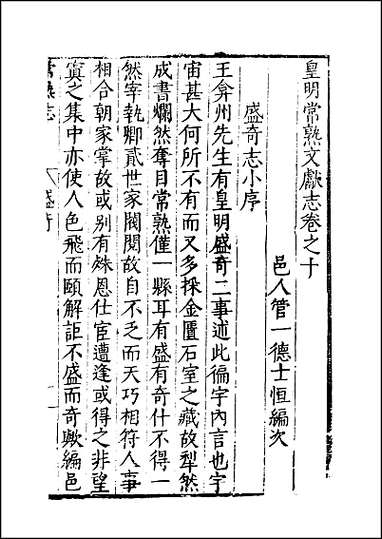 皇明常熟文獻志卷之十
邑人管一德士恒編次
盛奇志小序
王弇州先生有皇明盛奇二事述此徧宇內言也宇
宙甚大何所不有而又多採金匱石室之藏故犁然
成書爛然奪目常熟僅一縣耳有盛有奇什不得一
然宰執卿貳世家閥閱故自不乏而天巧相符人事
相合朝家掌故或別有殊恩仕宦遭逢或得之非望
寘之集中亦使人色飛而頤解詎不盛而奇歟編邑
常熟志
盛奇
一